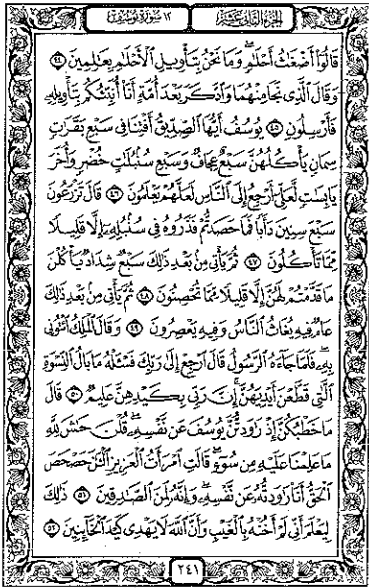 الجزء الثاني عشر
١٢ سورة يوسف
قَالُوٓا۟ أَضْغَٰثُ أَحْلَٰمٍ ۖ وَمَا نَحْنُ بِتَأْوِيلِ ٱلْأَحْلَٰمِ بِعَٰلِمِينَ ٤٤
وَقَالَ ٱلَّذِى نَجَا مِنْهُمَا وَٱدَّكَرَ بَعْدَ أُمَّةٍ أَنَا۠ أُنَبِّئُكُم بِتَأْوِيلِهِۦ
فَأَرْسِلُونِ ٤٥ يُوسُفُ أَيُّهَا ٱلصِّدِّيقُ أَفْتِنَا فِى سَبْعِ بَقَرَٰتٍ
سِمَانٍ يَأْكُلُهُنَّ سَبْعٌ عِجَافٌ وَسَبْعِ سُنۢبُلَٰتٍ خُضْرٍ وَأُخَرَ
يَابِسَٰتٍ لَّعَلِّىٓ أَرْجِعُ إِلَى ٱلنَّاسِ لَعَلَّهُمْ يَعْلَمُونَ ٤٦ قَالَ تَزْرَعُونَ
سَبْعَ سِنِينَ دَأَبًا فَمَا حَصَدتُّمْ فَذَرُوهُ فِى سُنۢبُلِهِۦٓ إِلَّا قَلِيلًا
مِّمَّا تَأْكُلُونَ ٤٧ ثُمَّ يَأْتِى مِنۢ بَعْدِ ذَٰلِكَ سَبْعٌ شِدَادٌ يَأْكُلْنَ
مَا قَدَّمْتُمْ لَهُنَّ إِلَّا قَلِيلًا مِّمَّا تُحْصِنُونَ ٤٨ ثُمَّ يَأْتِى مِنۢ بَعْدِ ذَٰلِكَ
عَامٌ فِيهِ يُغَاثُ ٱلنَّاسُ وَفِيهِ يَعْصِرُونَ ٤٩ وَقَالَ ٱلْمَلِكُ ٱئْتُونِى
بِهِۦ ۖ فَلَمَّا جَآءَهُ ٱلرَّسُولُ قَالَ ٱرْجِعْ إِلَىٰ رَبِّكَ فَسْـَٔلْهُ مَا بَالُ ٱلنِّسْوَةِ
ٱلَّٰتِى قَطَّعْنَ أَيْدِيَهُنَّ ۚ إِنَّ رَبِّى بِكَيْدِهِنَّ عَلِيمٌ ٥٠ قَالَ
مَا خَطْبُكُنَّ إِذْ رَٰوَدتُّنَّ يُوسُفَ عَن نَّفْسِهِۦ ۚ قُلْنَ حَٰشَ لِلَّهِ
مَا عَلِمْنَا عَلَيْهِ مِن سُوٓءٍ ۚ قَالَتِ ٱمْرَأَتُ ٱلْعَزِيزِ ٱلْـَٰٔنَ حَصْحَصَ
ٱلْحَقُّ أَنَا۠ رَٰوَدتُّهُۥ عَن نَّفْسِهِۦ وَإِنَّهُۥ لَمِنَ ٱلصَّٰدِقِينَ ٥١ ذَٰلِكَ
لِيَعْلَمَ أَنِّى لَمْ أَخُنْهُ بِٱلْغَيْبِ وَأَنَّ ٱللَّهَ لَا يَهْدِى كَيْدَ ٱلْخَآئِنِينَ ٥٢
٢٤١